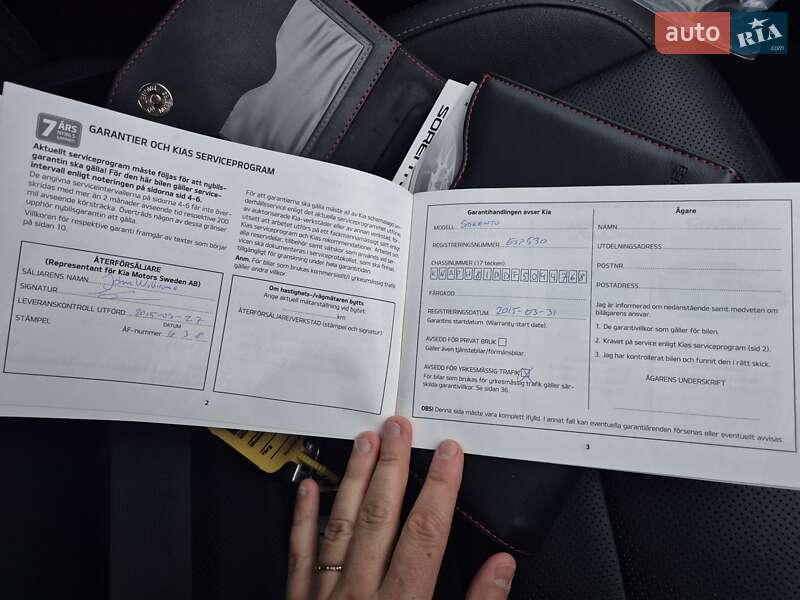 auto RIA.com
SOREN
7 ÅRS
NYBILS
GARANTI
GARANTIER OCH KIAS SERVICEPROGRAM
Aktuellt serviceprogram måste följas för att nybils-
garantin ska gälla! För den här bilen gäller service-
intervall enligt noteringen på sidorna sid 4-6.
De angivna serviceintervallerna på sidorna 4-6 får inte över-
skridas med mer än 2 månader avseende tid respektive 200
mil avseende körsträcka. Överträds någon av dessa gränser
upphör nybilsgarantin att gälla.
Villkoren för respektive garanti framgår av texter som börjar
på sidan 10.
För att garantierna ska gälla måste all av Kia schemalagd un-
derhållsservice enligt det aktuella serviceprogrammet utföras
av auktoriserad Kia-verkstäder eller av annan verkstad, för-
utsatt att arbetet utförs på ett fackmannamässigt sätt enligt
Kias serviceprogram och Kias rekommendationer. Arbetet samt
alla reservdelar, tillbehör samt vätskor som används vid ser-
vicen ska dokumenteras i serviceprotokollet, som ska finnas
tillgängligt för granskning under hela garantitiden.
Anm. För bilar som brukas kommersiellt/i yrkesmässig trafik
gäller andra villkor.
ÅTERFÖRSÄLJARE
(Representant för Kia Motors Sweden AB)
SÄLJARENS NAMN
SIGNATUR
LEVERANSKONTROLL UTFÖRD 2015-03-27
DATUM
STÄMPEL
ÅF-nummer 638
Om hastighets-/vägmätaren bytts
Ange aktuell mätarställning vid bytet:
km
ÅTERFÖRSÄLJARE/VERKSTAD (stämpel och signatur):
2
Garantihandlingen avser Kia
MODELL SORENTO
REGISTRERINGSNUMMER ESP530
CHASSINUMMER (17 tecken):
FÄRGKOD
REGISTRERINGSDATUM 2015-03-31
Garantins startdatum. (Warranty start date).
AVSEDD FÖR PRIVAT BRUK
Gäller även tjänstebilar/förmånsbilar.
AVSEDD FÖR YRKESMÄSSIG TRAFIK
För bilar som brukas för yrkesmässig trafik gäller sär-
skilda garantivillkor. Se sidan 36.
Ägare
NAMN
UTDELNINGSADRESS
POSTNR
POSTADRESS
Jag är informerad om nedanstående samt medveten om
bilägarens ansvar.
1. De garantivillkor som gäller för bilen.
2. Kravet på service enligt Kias serviceprogram (sid 2).
3. Jag har kontrollerat bilen och funnit den i rätt skick.
ÄGARENS UNDERSKRIFT
OBS! Denna sida måste vara komplett ifylld. I annat fall kan eventuella garantiärenden försenas eller eventuellt avvisas.
3